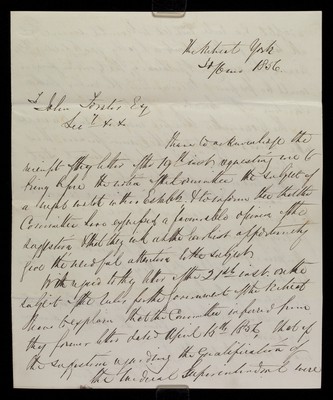 The Retreat York
1856.
To John Forster Esq
Sec.y &c
I have to acknowledge the
receipt of thy letter of the 19th inst requesting me to
bring before the notice of the Committee the subject of
a light outlet to this Establt & to inform thee that the
Committee have expressed a favorable opinion of the
suggestion & that they will at the earliest opportunity
give the needful attention to the subject.
With regard to thy letter of the 21st inst. on the
subject of the rules for the Government of the Retreat
I have to explain that the Committee inferred from
thy former letter dated April 15th 1856, that if
the suggestions regarding the Qualification of
the Medical Superintendent were